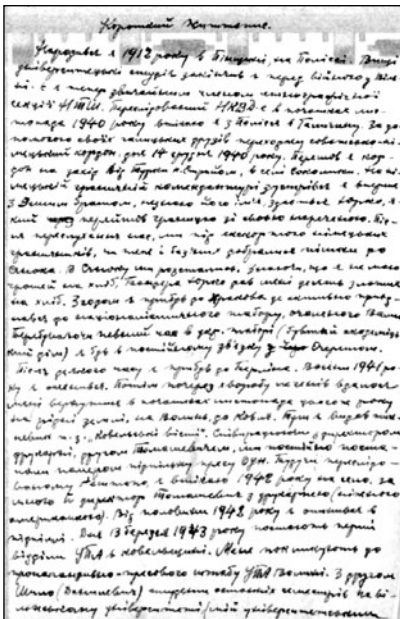 Короткий Життєпис.
Народився я 1912 року в Пінщині, на Поліссі. Вищі
університетські студії закінчив я перед війною у Віль-
ні. Є я тепер звичайним членом етнографічної
секції НТШ. Переслідований НКВД-є в початках лис-
топада 1940 року втікаю я з Полісся в Галичину. За до-
помогою своїх галицьких друзів переходжу совєтсько-ні-
мецький кордон, дня 14 грудня 1940 року. Перейшов я кор-
дон на захід від Турки н. Стриєм, в селі Соколики. На ні-
мецькій граничній комендантурі зустрівся я вперше
з Вашим братом, , здається Юрко, я-
кий перейшов границю зі своєю нареченою. Піс-
ля переслухання нас, ми під ескортою німецьких
граничників, на пів і босі добралися пішки до
Сянока. В Сяноку ми розстались. Знаючи, що я не маю
грошей на хліб, Бандера Юрко дав мені десять злотих
на хліб. Згодом я прибув до Кракова де активно приєд-
нався до націоналістичного табору, очоленого Вами.
Перебуваючи певний час в укр. таборі (бувший академіч-
кий дім) я був в постійному зв'язку з
Після деякого часу я прибув до Берліна. Восени 1941 ро-
ку я оженився. Потім через хворобу легенів вдалося
мені вернутися в початках листопада цього ж року
на рідні землі, на Волинь, до Ковля. Тут я видав там
п. з. „Ковельські вісті". Співпрацюючи з директором
друкарні, другом Томашевичем, ми постійно поста-
чали папером підпільну пресу ОУН. Будучи пересліду-
ваному Гестапо, я втікаю 1942 року на село, за
мною й директор Томашевич з друкарнею (пізніше
). Від половини 1942 року я опинився в
підпіллі. Дня 13 березня 1943 року постають перші
відділи УПА в Ковельщині. Мене покликують до
пропагандивно-пресового штабу УПА Волині. З другом
(Данилевич) студент останніх семестрів на ві-
ленському університеті (мій університетський